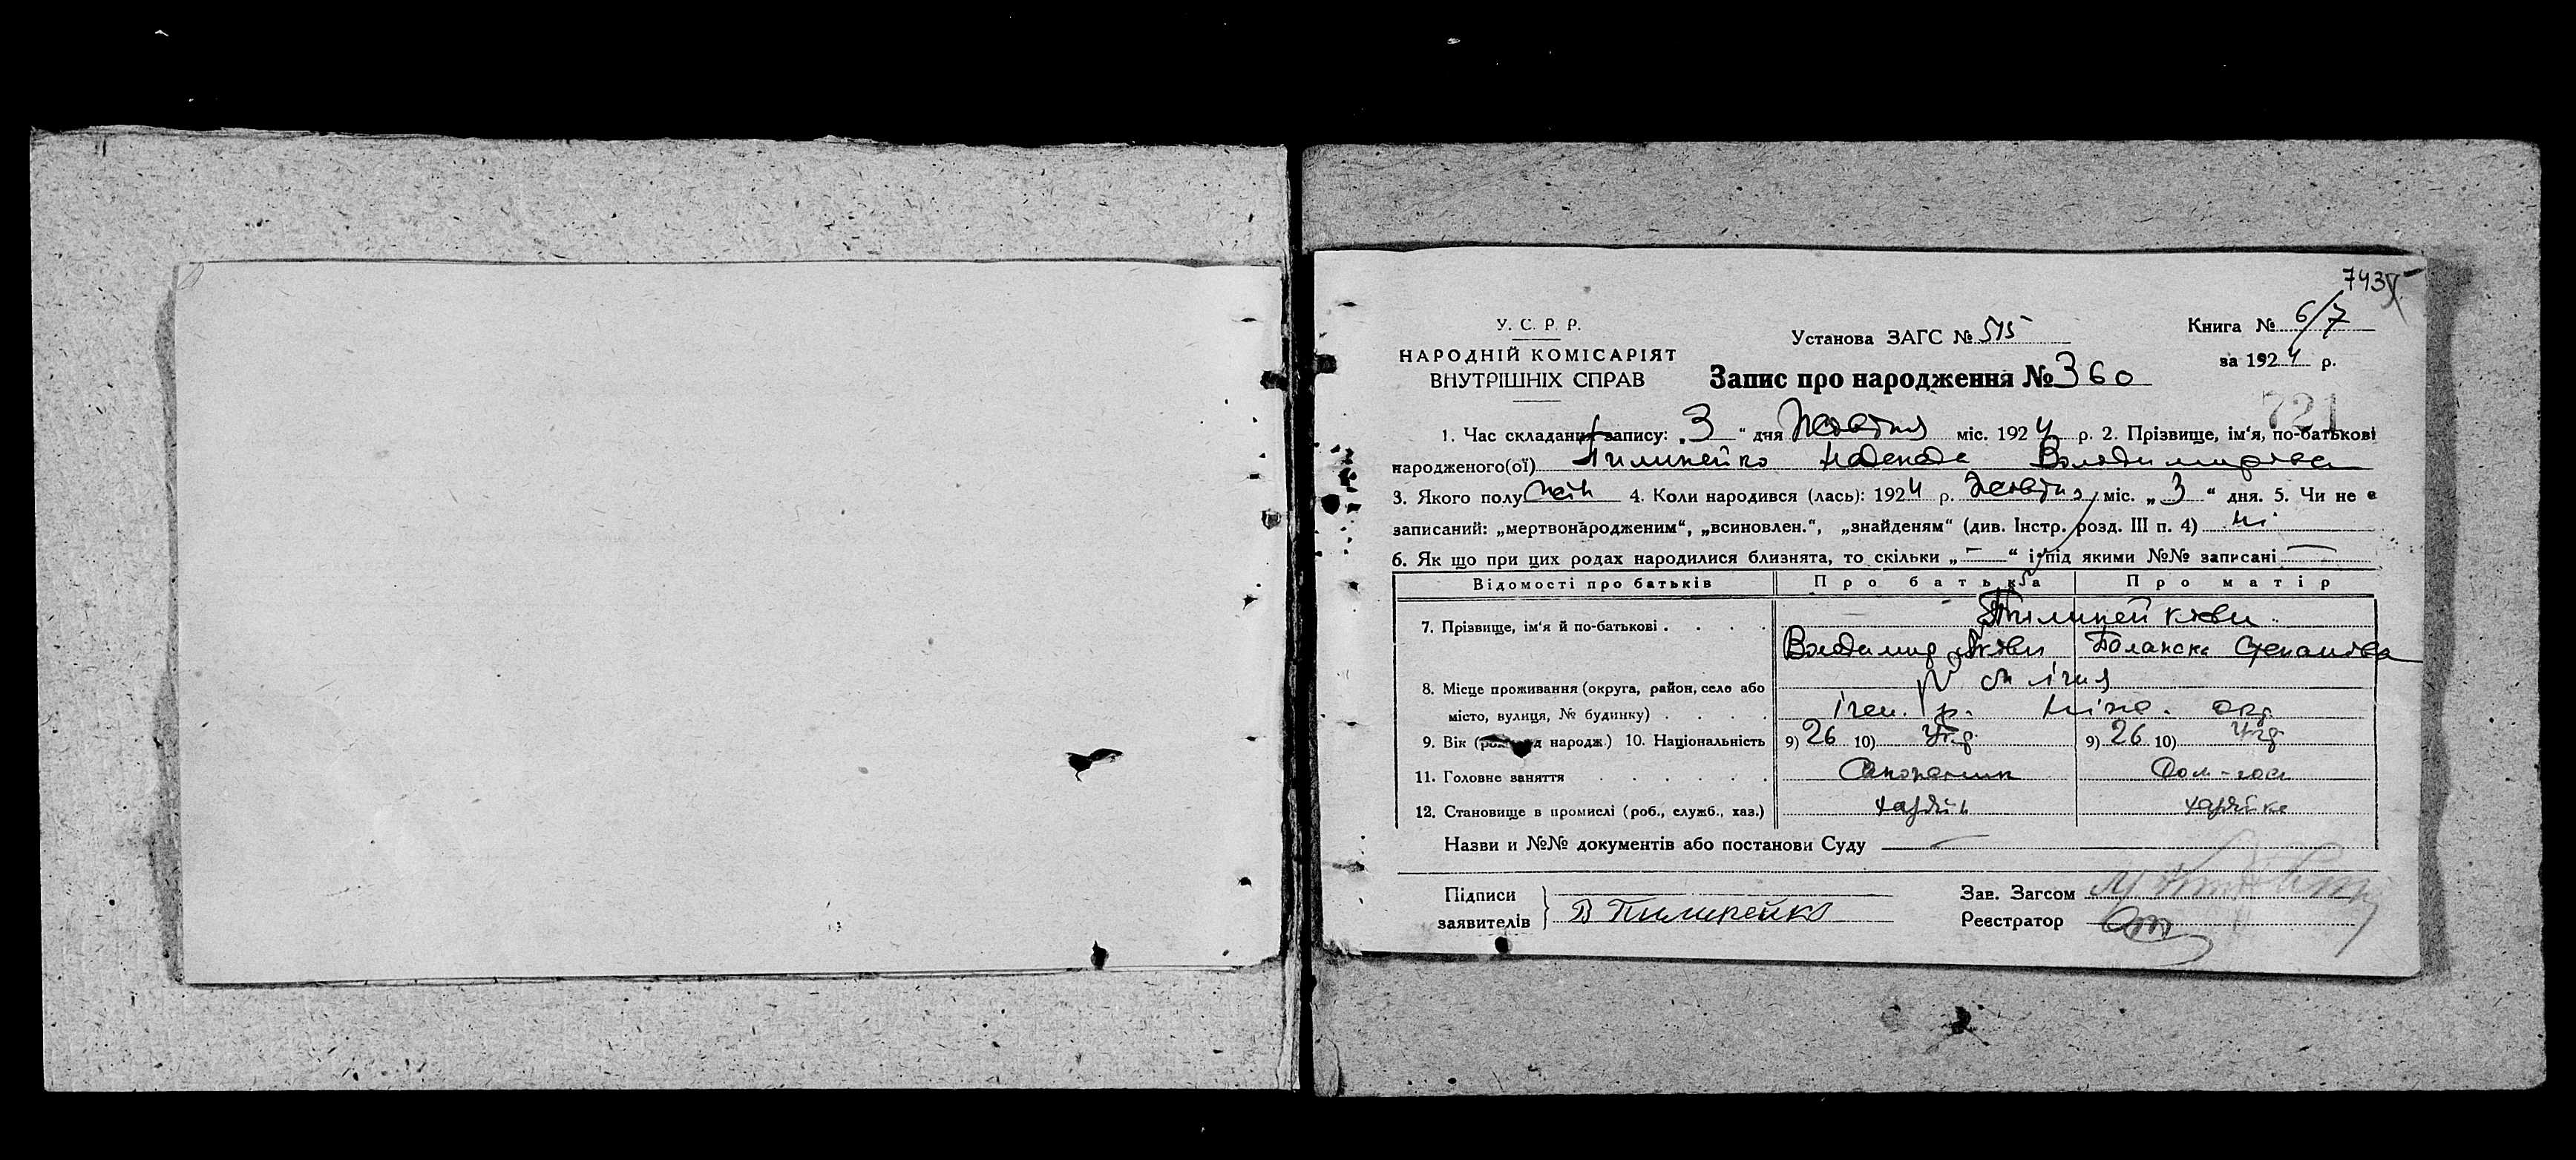 743
У. С. Р. Р.
НАРОДНІЙ КОМІСАРІЯТ
ВНУТРІШНІХ СПРАВ
Установа ЗАГС № 515
Книга № 6/7
за 1924 р.
Запис про народження № 360
721
1. Час складання запису: „3“ дня Жовтня міс. 1924 р. 2. Прізвище, ім'я, по-батькові
народженого(ої) Надежда Володимирова
3. Якого полу жін 4. Коли народився (лась): 1924 р. Жовтня міс. „3“ дня. 5. Чи не є
записаний: „мертвонародженим“, „всиновлен.“, „знайденям“ (див. Інстр. розд. III п. 4) ні
6. Як що при цих родах народилися близнята, то скільки „—“ і під якими №№ записані —
Відомості про батьків Про батька Про матір
7. Прізвище, ім'я й по-батькові
Володимир Якови Степанова
8. Місце проживання (округа, район, село або
місто, вулиця, № будинку) Ічен. р. Ніжс. окр
9. Вік (рок народж.) 10. Національність 9) 26 10) Укр. 9) 26 10) Укр
11. Головне заняття Дом-гос
12. Становище в промислі (роб., служб., хаз.) хазяїн хазяйка
Назви и №№ документів або постанови Суду —
Підписи
заявителів В
Зав. Загсом
Реєстратор